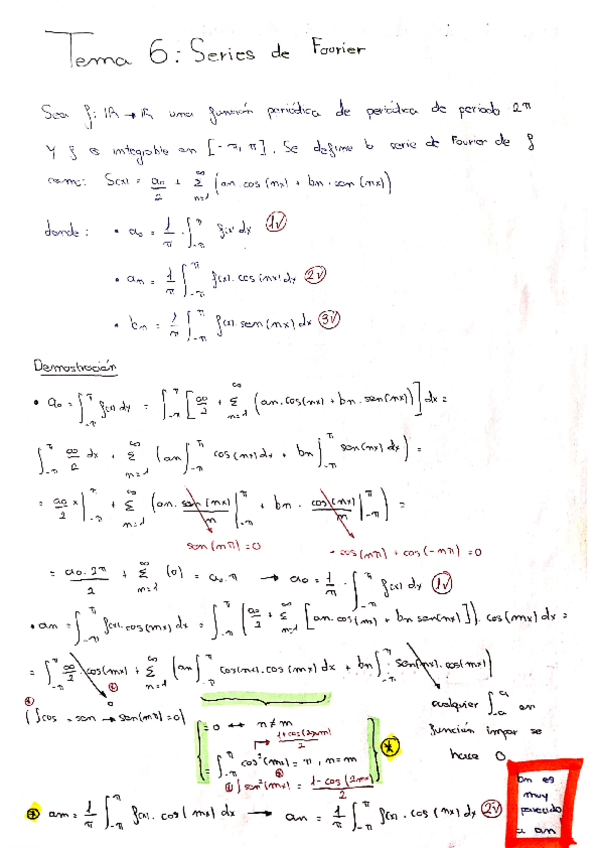 Tema 6: Series de Fourier
Sea f: ℝ → ℝ una función periódica de periódica de periodo 2π
y f es integrable en [-π, π]. Se define la serie de Fourier de f
como: S(x) = a₀/2 + Σ_{n=1}^{∞} (an · cos(nx) + bn · sen(nx))
donde: • a₀ = 1/π · ∫_{-π}^{π} f(x) dx 1✓
• an = 1/π ∫_{-π}^{π} f(x) · cos(nx) dx 2✓
• bn = 1/π ∫_{-π}^{π} f(x) · sen(nx) dx 3✓
Demostración
• a₀ = ∫_{-π}^{π} f(x) dx = ∫_{-π}^{π} [a₀/2 + Σ_{n=1}^{∞} (an · cos(nx) + bn · sen(nx))] dx =
∫_{-π}^{π} a₀/2 dx + Σ_{n=1}^{∞} (an ∫_{-π}^{π} cos(nx) dx + bn ∫_{-π}^{π} sen(nx) dx) =
= a₀/2 x |_{-π}^{π} + Σ_{n=1}^{∞} (an · sen(nx)/n |_{-π}^{π} + bn · cos(nx)/n |_{-π}^{π}) =
sen(nπ) = 0 - cos(nπ) + cos(-nπ) = 0
= a₀ · 2π/2 + Σ_{n=1}^{∞} (0) = a₀ · π → a₀ = 1/π · ∫_{-π}^{π} f(x) dx 1✓
• an = ∫_{-π}^{π} f(x) · cos(mx) dx = ∫_{-π}^{π} [a₀/2 + Σ_{n=1}^{∞} [an · cos(nx) + bn sen(nx)]] · cos(mx) dx =
= ∫_{-π}^{π} a₀/2 · cos(mx) + Σ_{n=1}^{∞} (an ∫_{-π}^{π} cos(nx) · cos(mx) dx + bn ∫_{-π}^{π} sen(nx) · cos(mx))
0
(∫cos = sen → sen(mπ) = 0)
cualquier ∫_{-a}^{a} en
función impar se
hace 0
= 0 ↔ n ≠ m
1 + cos(2mx)/2
= ∫_{-π}^{π} cos²(mx) = π, n = m
∫ sen²(mx) = 1 - cos(2mx)/2
am = 1/π ∫_{-π}^{π} f(x) · cos(mx) dx → an = 1/π ∫_{-π}^{π} f(x) · cos(nx) dx 2✓
bn es
muy
parecido
a an